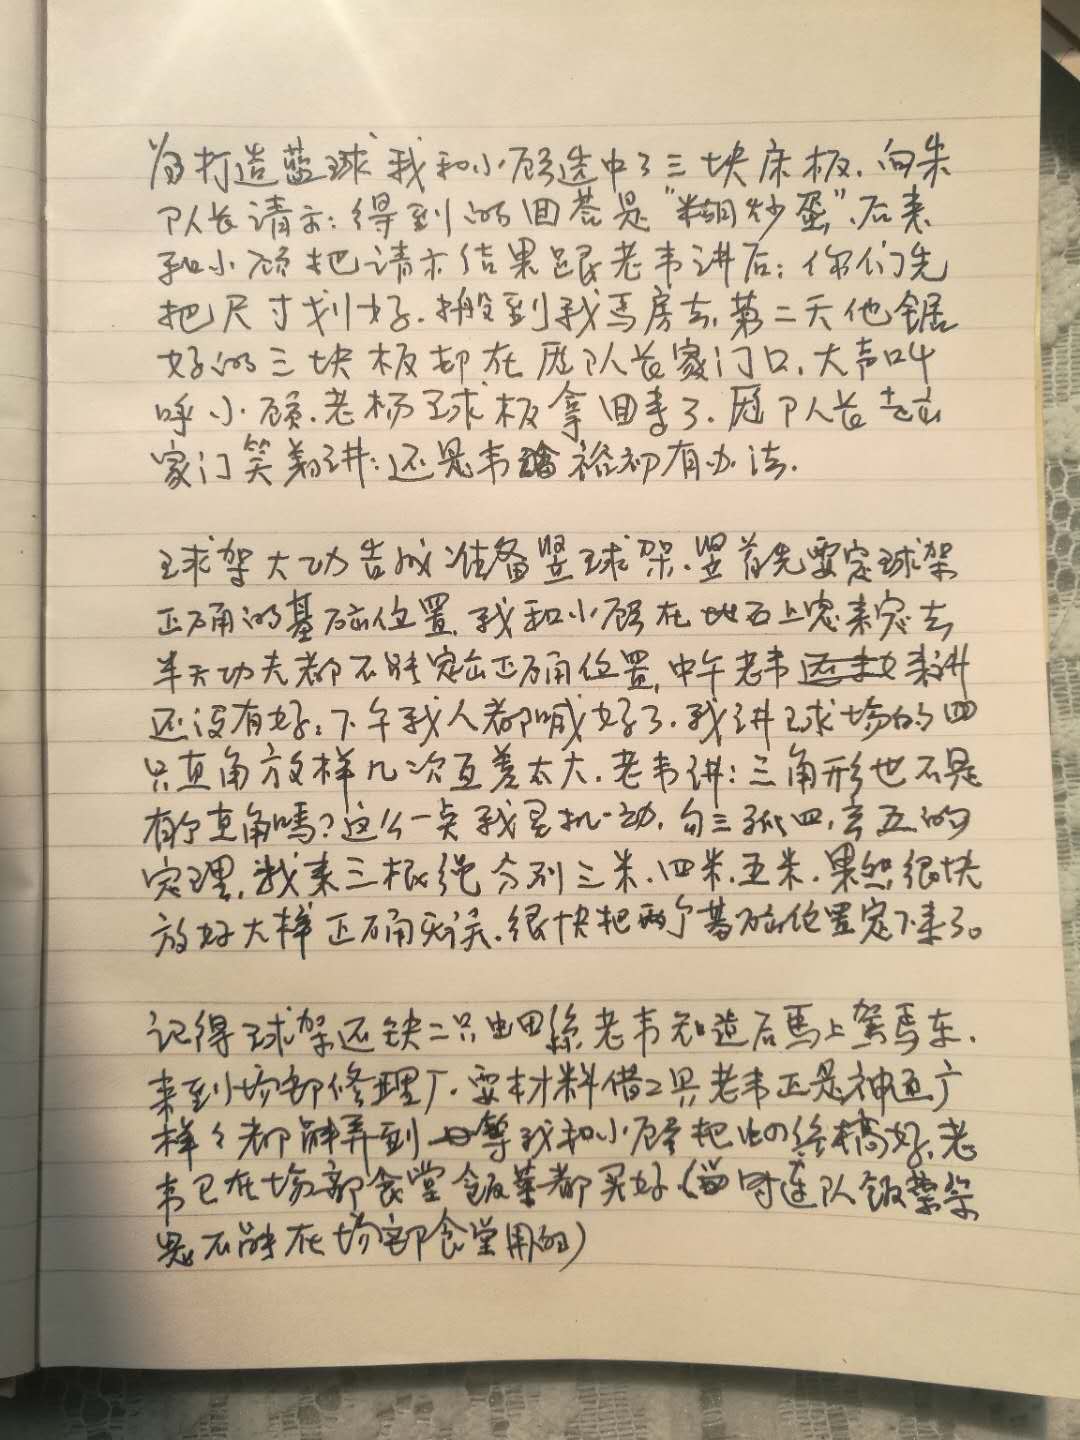 为打造蓝球我和小顾选中了三块床板.向朱
队长请示:得到的回答是"糊炒蛋".后来
和小顾把请示结果跟老韦讲后:你们先
把尺寸划好.搬到我马房去,第二天他锯
好的三块板都在 队长家门口,大声叫
呼小顾.老杨球板拿回来了. 队长走出
家门笑着讲:还是韦 裕初有办法.
球架大功告成准备竖球架.竖首先要定球架
正确的基础位置,我和小顾在地石上定来定去
半天功夫都不能定出正确位置,中午老韦 来讲
还没有好:下午我人都喊好了.我讲球场的四
只直角放样几次互差太大.老韦讲:三角形也不是
有个直角吗?这么一点我灵机一动.勾三 四,玄五的
定理, 来三根绳分别三米.四米.五米.果然很快
放好大样正确无误.很快把两个基础位置定下来了。
记得球架还缺二只 老韦知道后马上驾马车.
来到场部修理厂.要材料借工具老韦正是神通广
样々都能弄到 等我和小顾把 搞好,老
韦已在场部食堂饭菜都买好(当时连队饭菜
是不能在场部食堂用的)